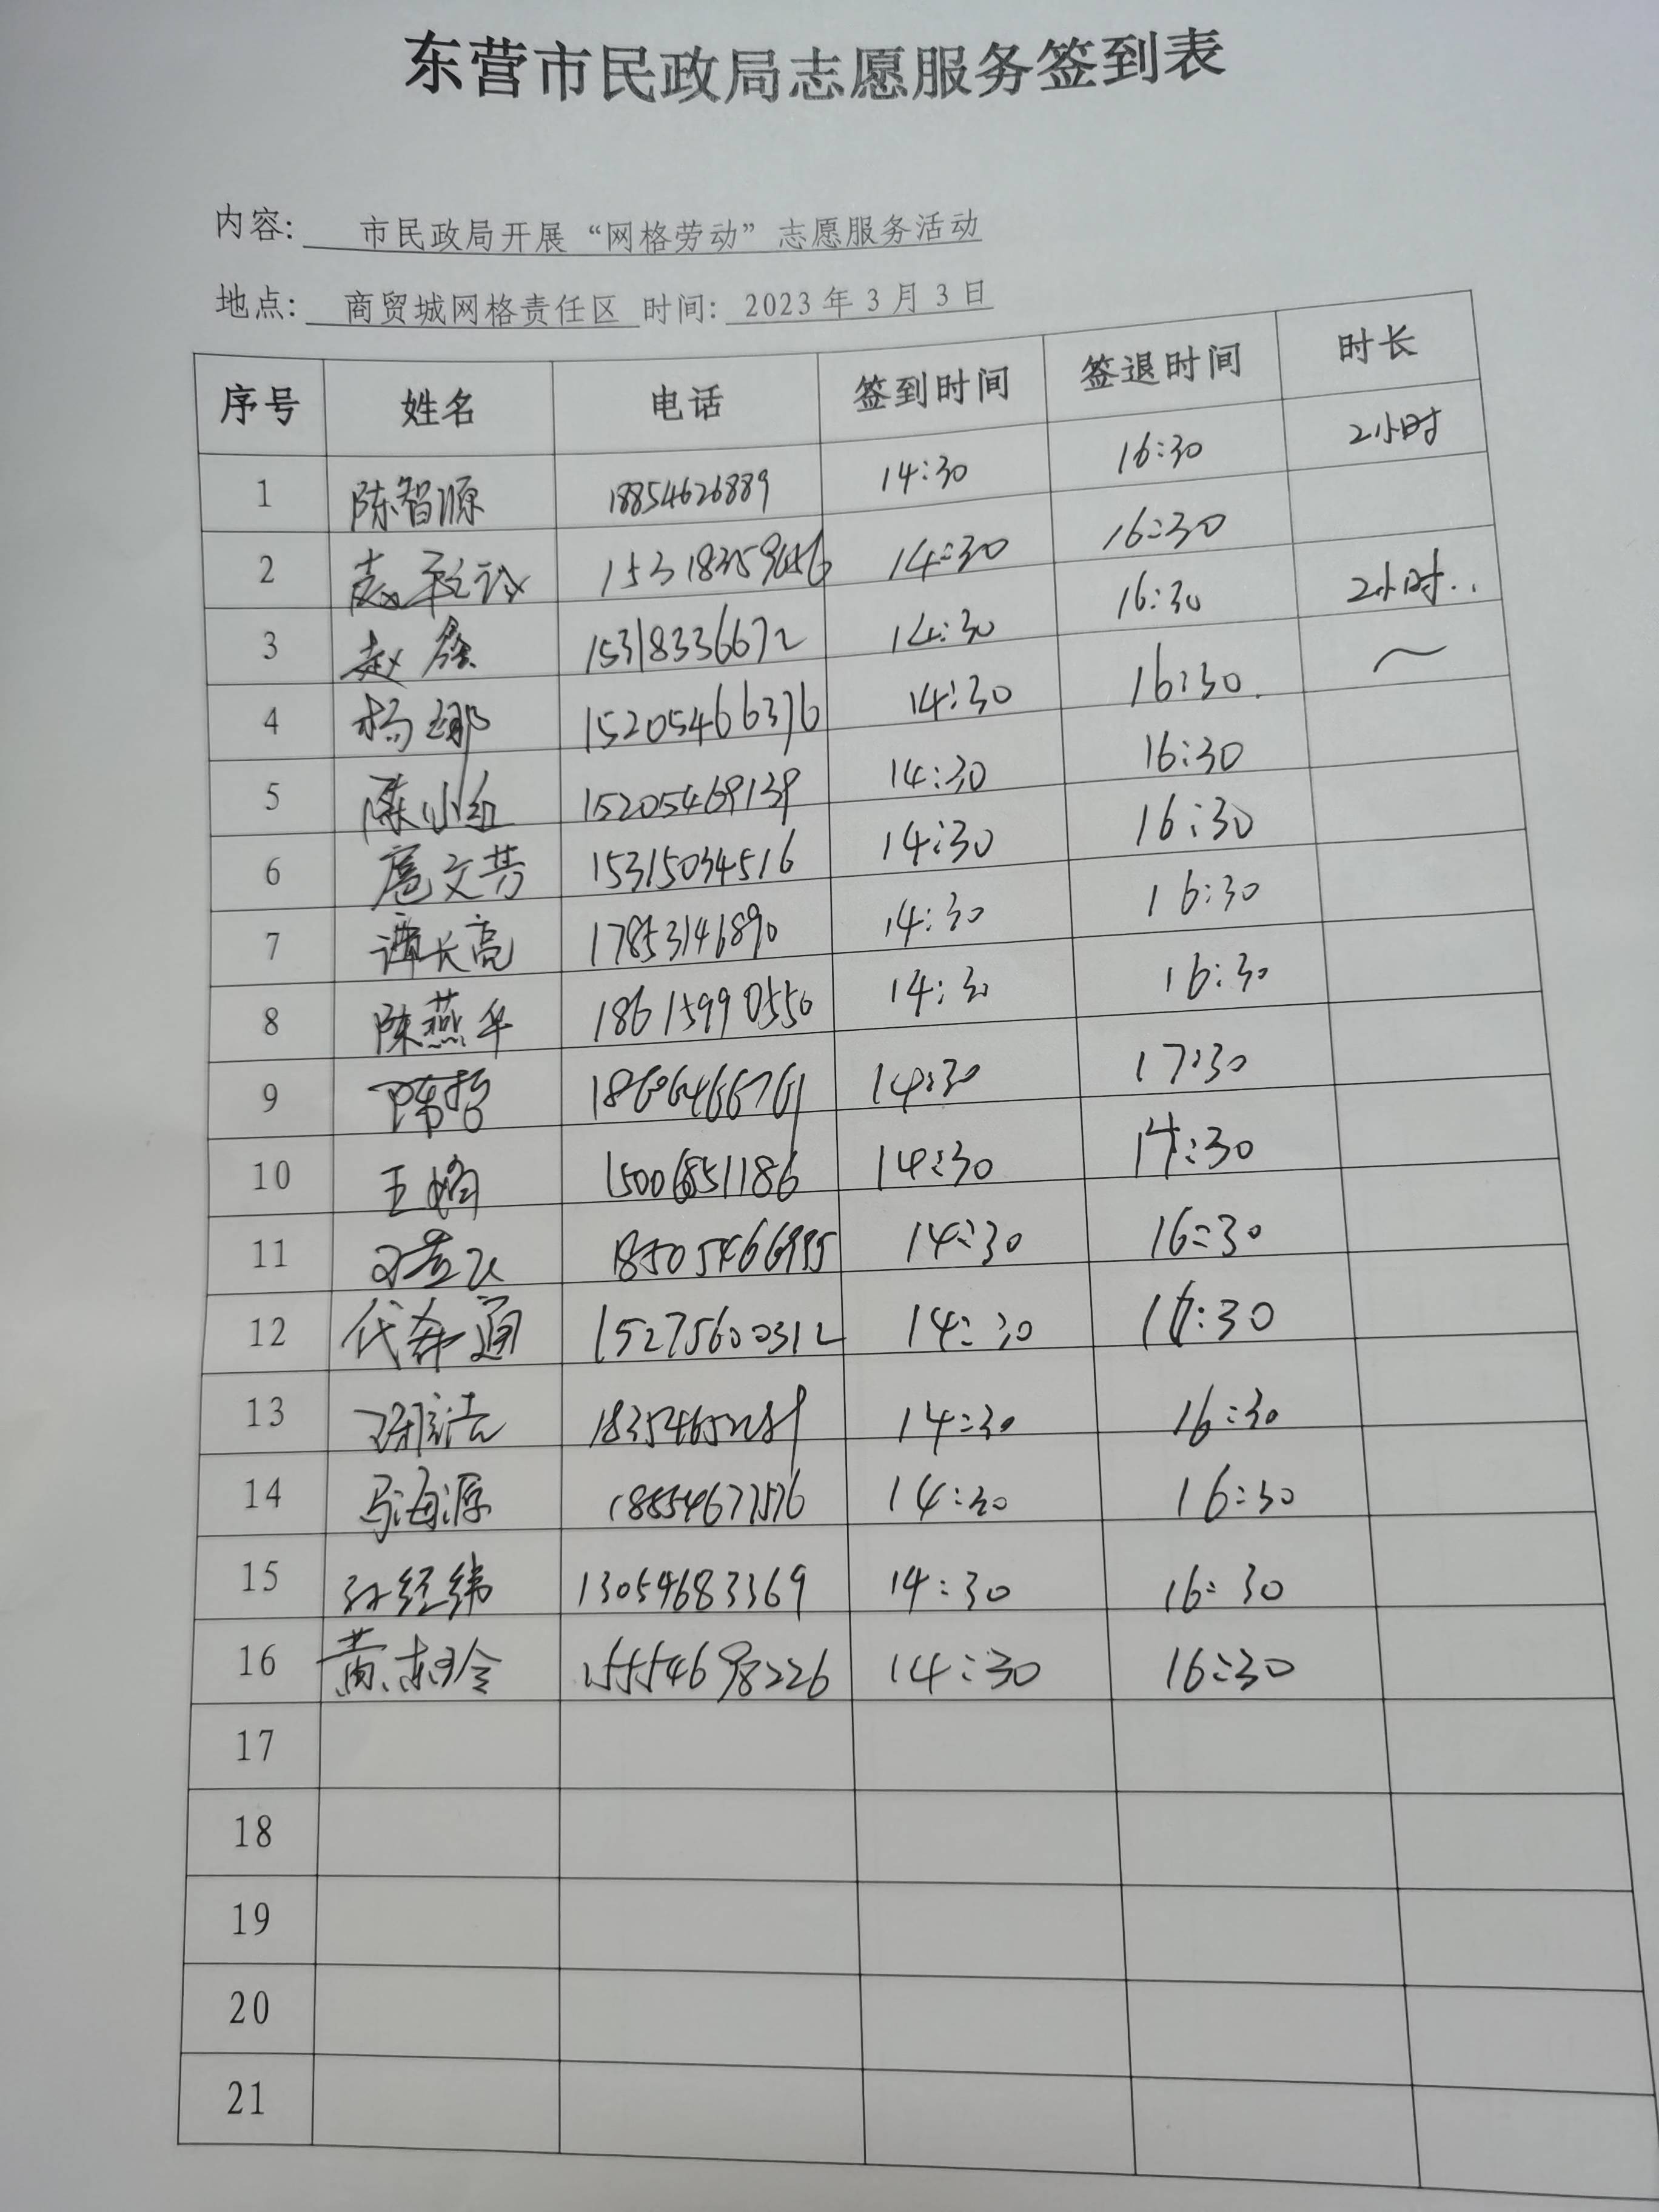 东营市民政局志愿服务签到表
内容: 市民政局开展“网格劳动”志愿服务活动
地点: 商贸城网格责任区 时间: 2023年3月3日
序号 姓名 电话 签到时间 签退时间 时长
1 陈智源 18854626889 14:30 16:30 2小时
2 14:30 16:30
3 赵 15318336672 14:30 16:30 2小时..
4 杨娜 15205466376 14:30 16:30.
5 陈小红 15205469139 14:30 16:30
6 扈文芳 15315034516 14:30 16:30
7 谭长亮 17853146890 14:30 16:30
8 陈燕华 18615990550 14:30 16:30
9 14:30 17:30
10 王娟 15006851186 14:30 14:30
11 18505466995 14:30 16:30
12 代希通 15275600312 14:30 :30
13 14:30 16:30
14 马海源 18854677576 14:30 16:30
15 孙经纬 13054683369 14:30 16:30
16 黄东玲 15554698226 14:30 16:30
17
18
19
20
21